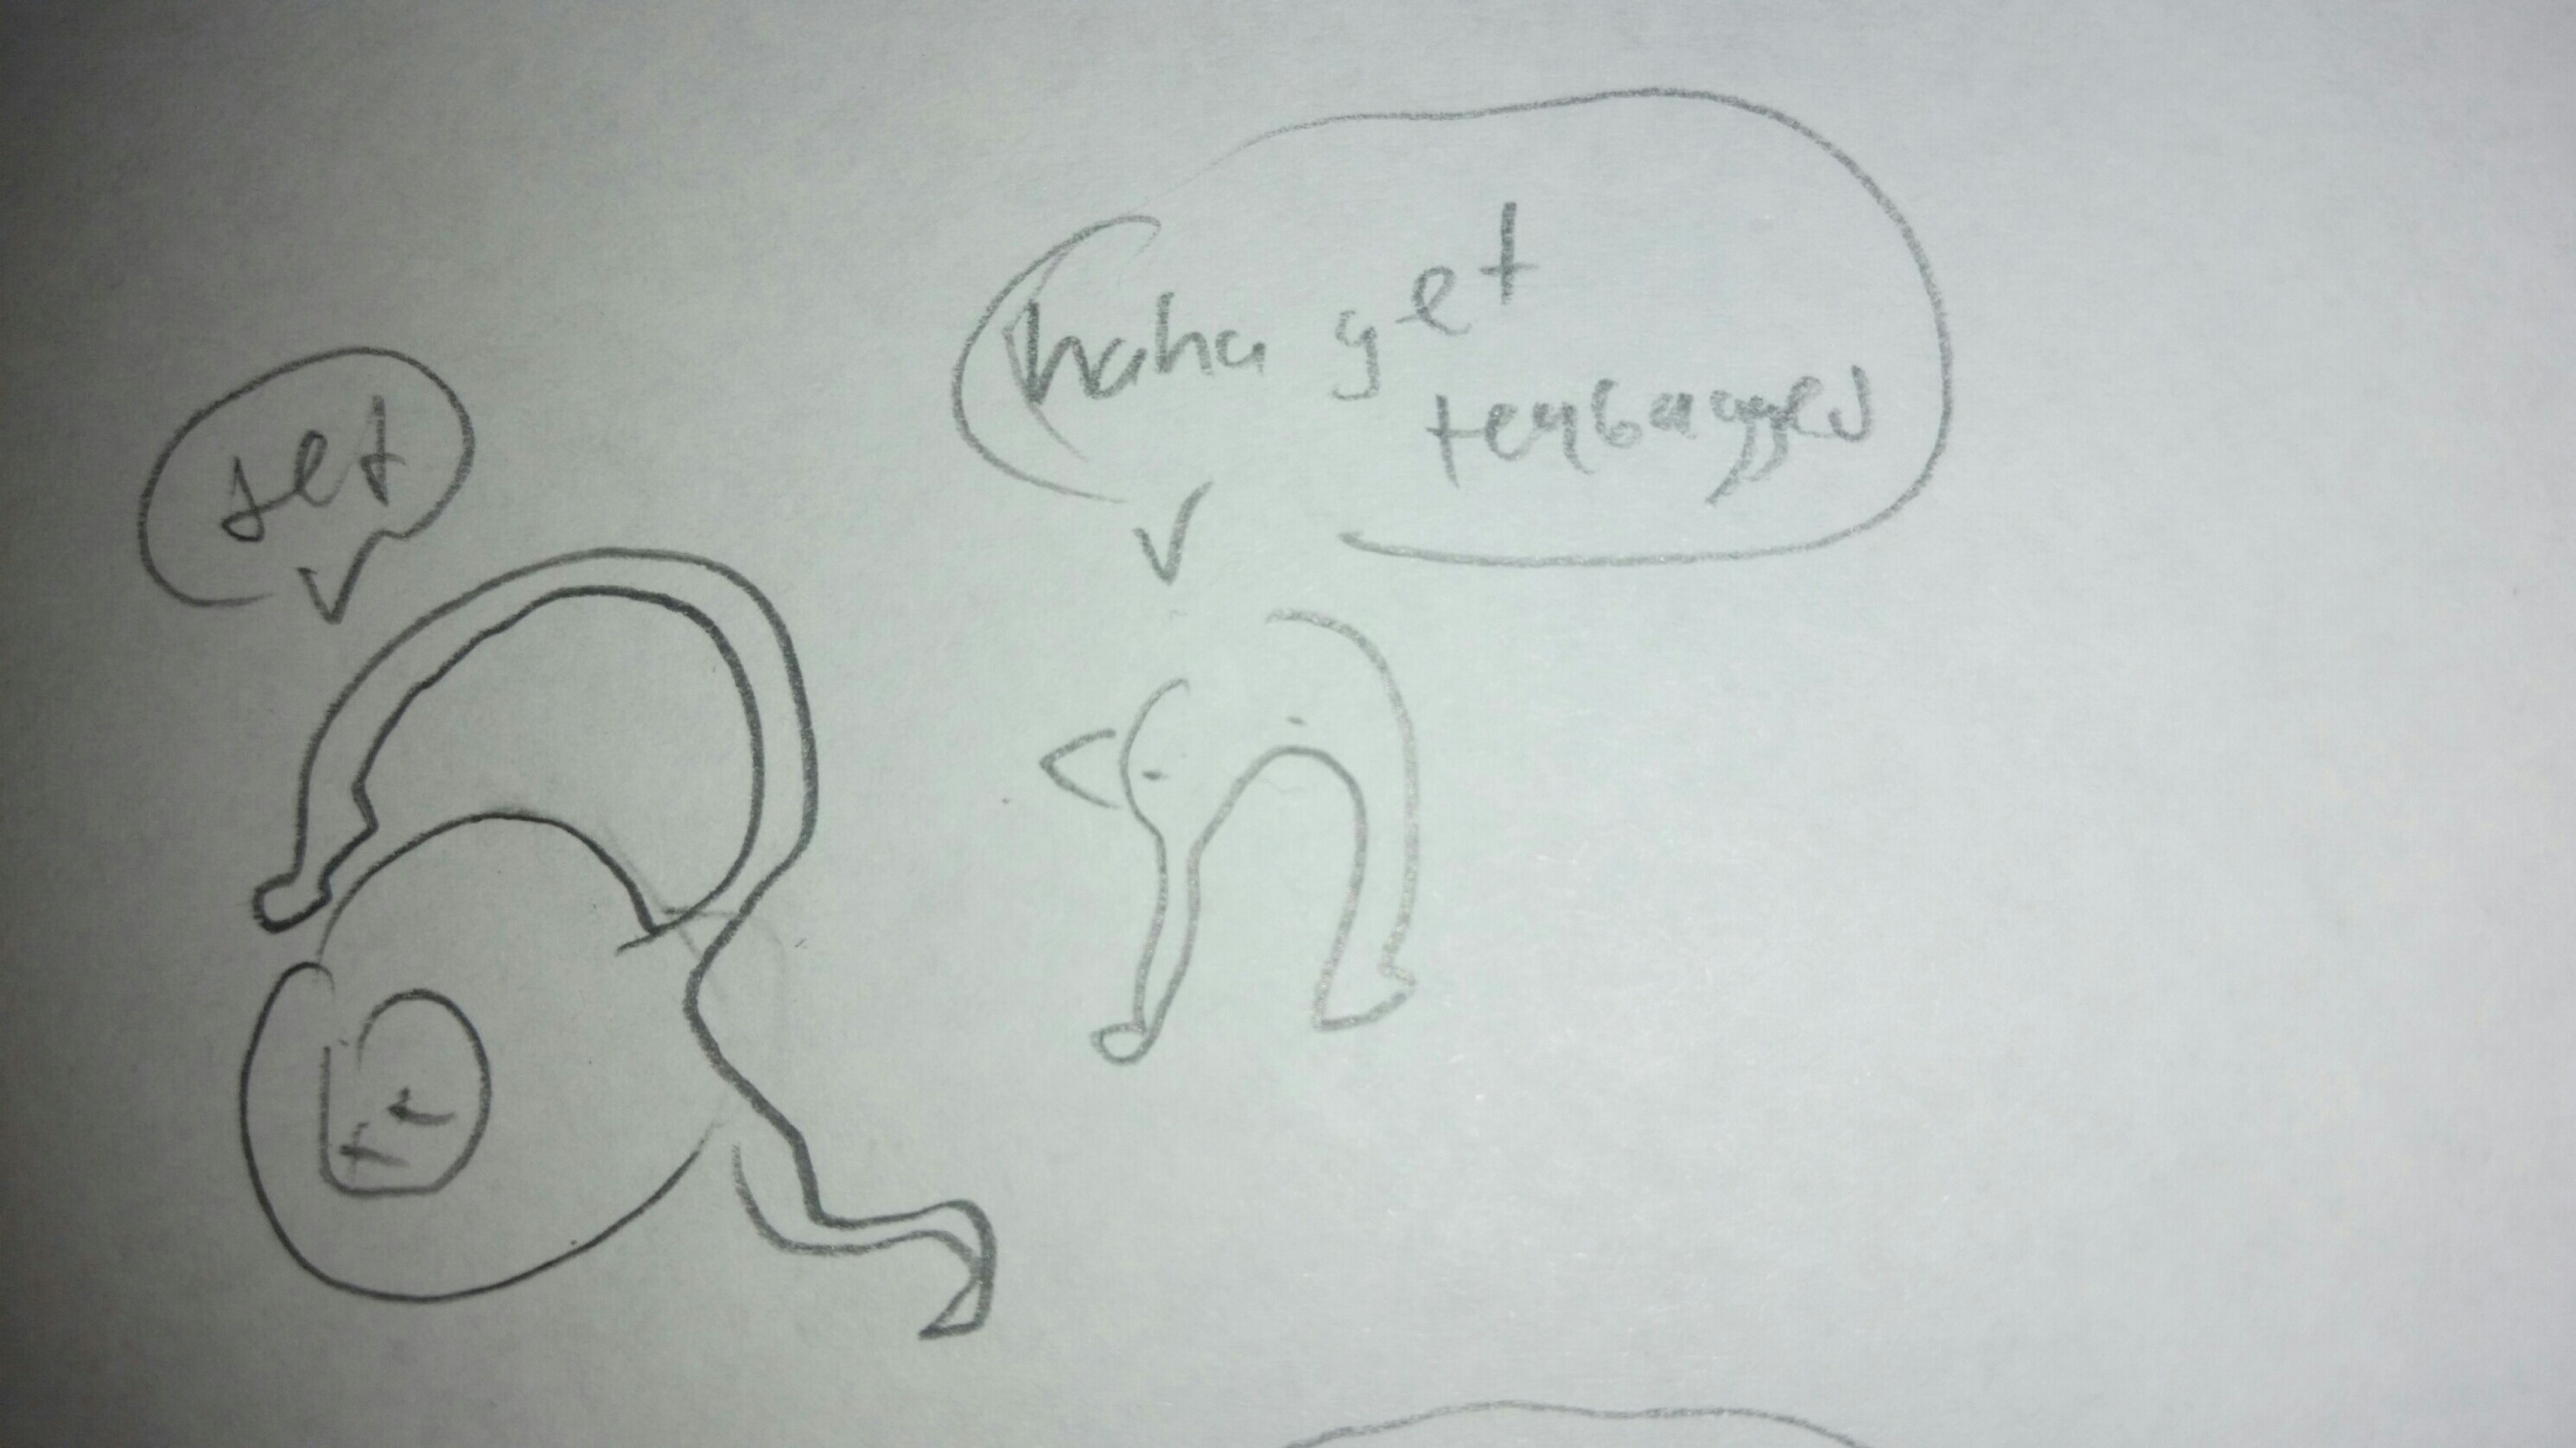 set
haha get
teabagged